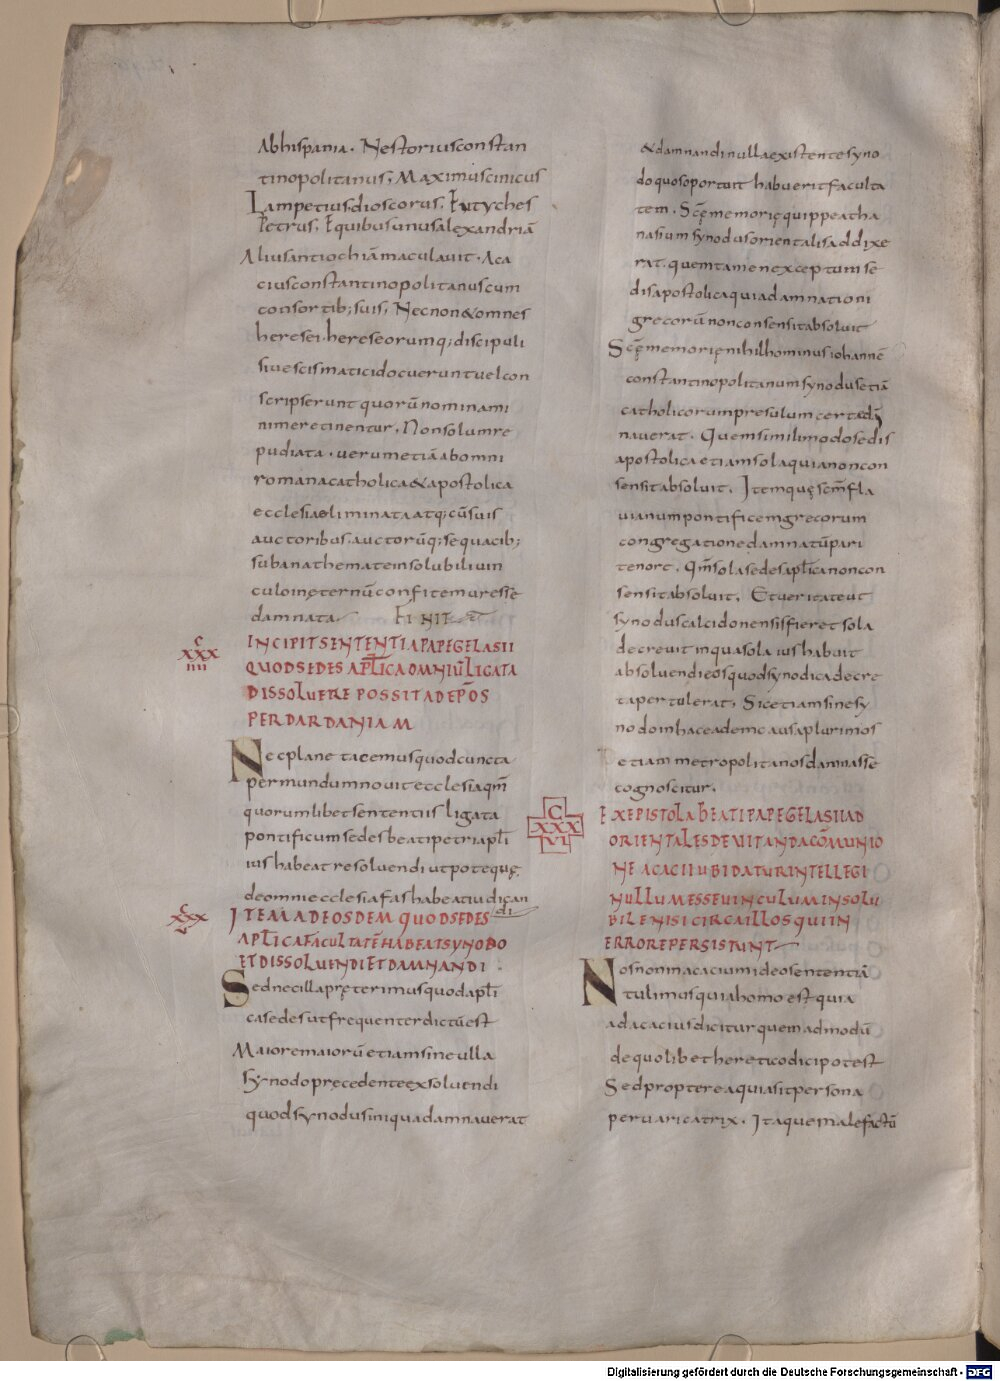 Abhispania. Nestoriusconstan
tinopolitanus, Maximuscinicus
Lampetiusdioscorus, Eutyches
Petrus, Equibusunusalexandriā
Aliusantiochiāmaculauit. Aca
ciusconstantinopolitanuscum
consortib; suis, Necnon&omnes
heresei. hereseorumq; discipuli
siuescismaticidocueruntuelcon
scripseruntquorūnominami
nimeretinentur. Nonsolumre
pudiata. uerumetiāabomni
romanacatholica&apostolica
ecclesiaeliminataatq; cūsuis
auctoribus. auctorūq; sequacib;
subanathemateinsolubiliuin
culoinęternūconfitemuresse
damnata FINIT
C
XXX
IIII
INCIPITSENTENTIAPAPEGELASII
QUODSEDESAPL̄ICAOMNIŪLIGATA
DISSOLUERE POSSITADEP̄OS
PERDARDANIAM
Necplane tacemusquodcuncta
permundumnouitecclesiaqm̄
quorumlibetsententiis ligata
pontificumsedesbeatipetriapl̄i
iushabeatresoluendi utpotequę
deomniecclesiafashabeatiudican
di
C
XXX
V
ITEMADEOSDEM QUODSEDES
APL̄ICAFACULTATĒHABEATSYNODO
ETDISSOLUENDIETDAMNANDI.
Sednecillapręterimusquodapl̄i
casedesutfrequenterdictūest
Maioremaiorūetiamsineulla
synodoprecedenteexsoluendi
quodsynodusiniquadamnauerat
&damnandinullaexistentesyno
doquosoportuit habueritfaculta
tem. Sc̄ęmemorięquippeatha
nasiumsynodusorientalisaddixe
rat. quemtamenexceptumse
disapostolicaquiadamnationi
grecorūnonconsensitabsoluit
Sc̄ęmemorięnihilhominusiohannē
constantinopolitanumsynodusetiā
catholicorumpresulumcertadā
nauerat. Quemsimilimodosedis
apostolicaetiamsolaquianoncon
sensitabsoluit. Itemquęsc̄mfla
uianumpontificemgrecorum
congregationedamnatūpari
tenore. Qm̄solasedesapl̄icanoncon
sensitabsoluit, Etueritateut
synoduscalcidonensisfieretsola
decreuitinquasola iushabuit
absoluendieosquodsynodicadecre
tapertulerat, Sicetiamsinesy
nodoinhaceademcausaplurimos
etiam metropolitanosdamnasse
cognoscitur.
C
XXX
VI
EXEPISTOLABEATIPAPEGELASIIAD
ORIENTALESDEUITANDACOM̄UNIO
NE ACACIIUBIDATURINTELLEGI
NULLUMESSEUINCULUMINSOLU
BILENISICIRCAILLOSQUIIN
ERROREPERSISTUNT
Nosnoninacaciumideosententiā
tulimusquiahomoestquia
adacaciusdiciturquemadmodū
dequolibethereticodicipotest
Sedproptereaquiasitpersona
peruaricatrix. Itaquemalefactū
Digitalisierung gefördert durch die Deutsche Forschungsgemeinschaft - DFG